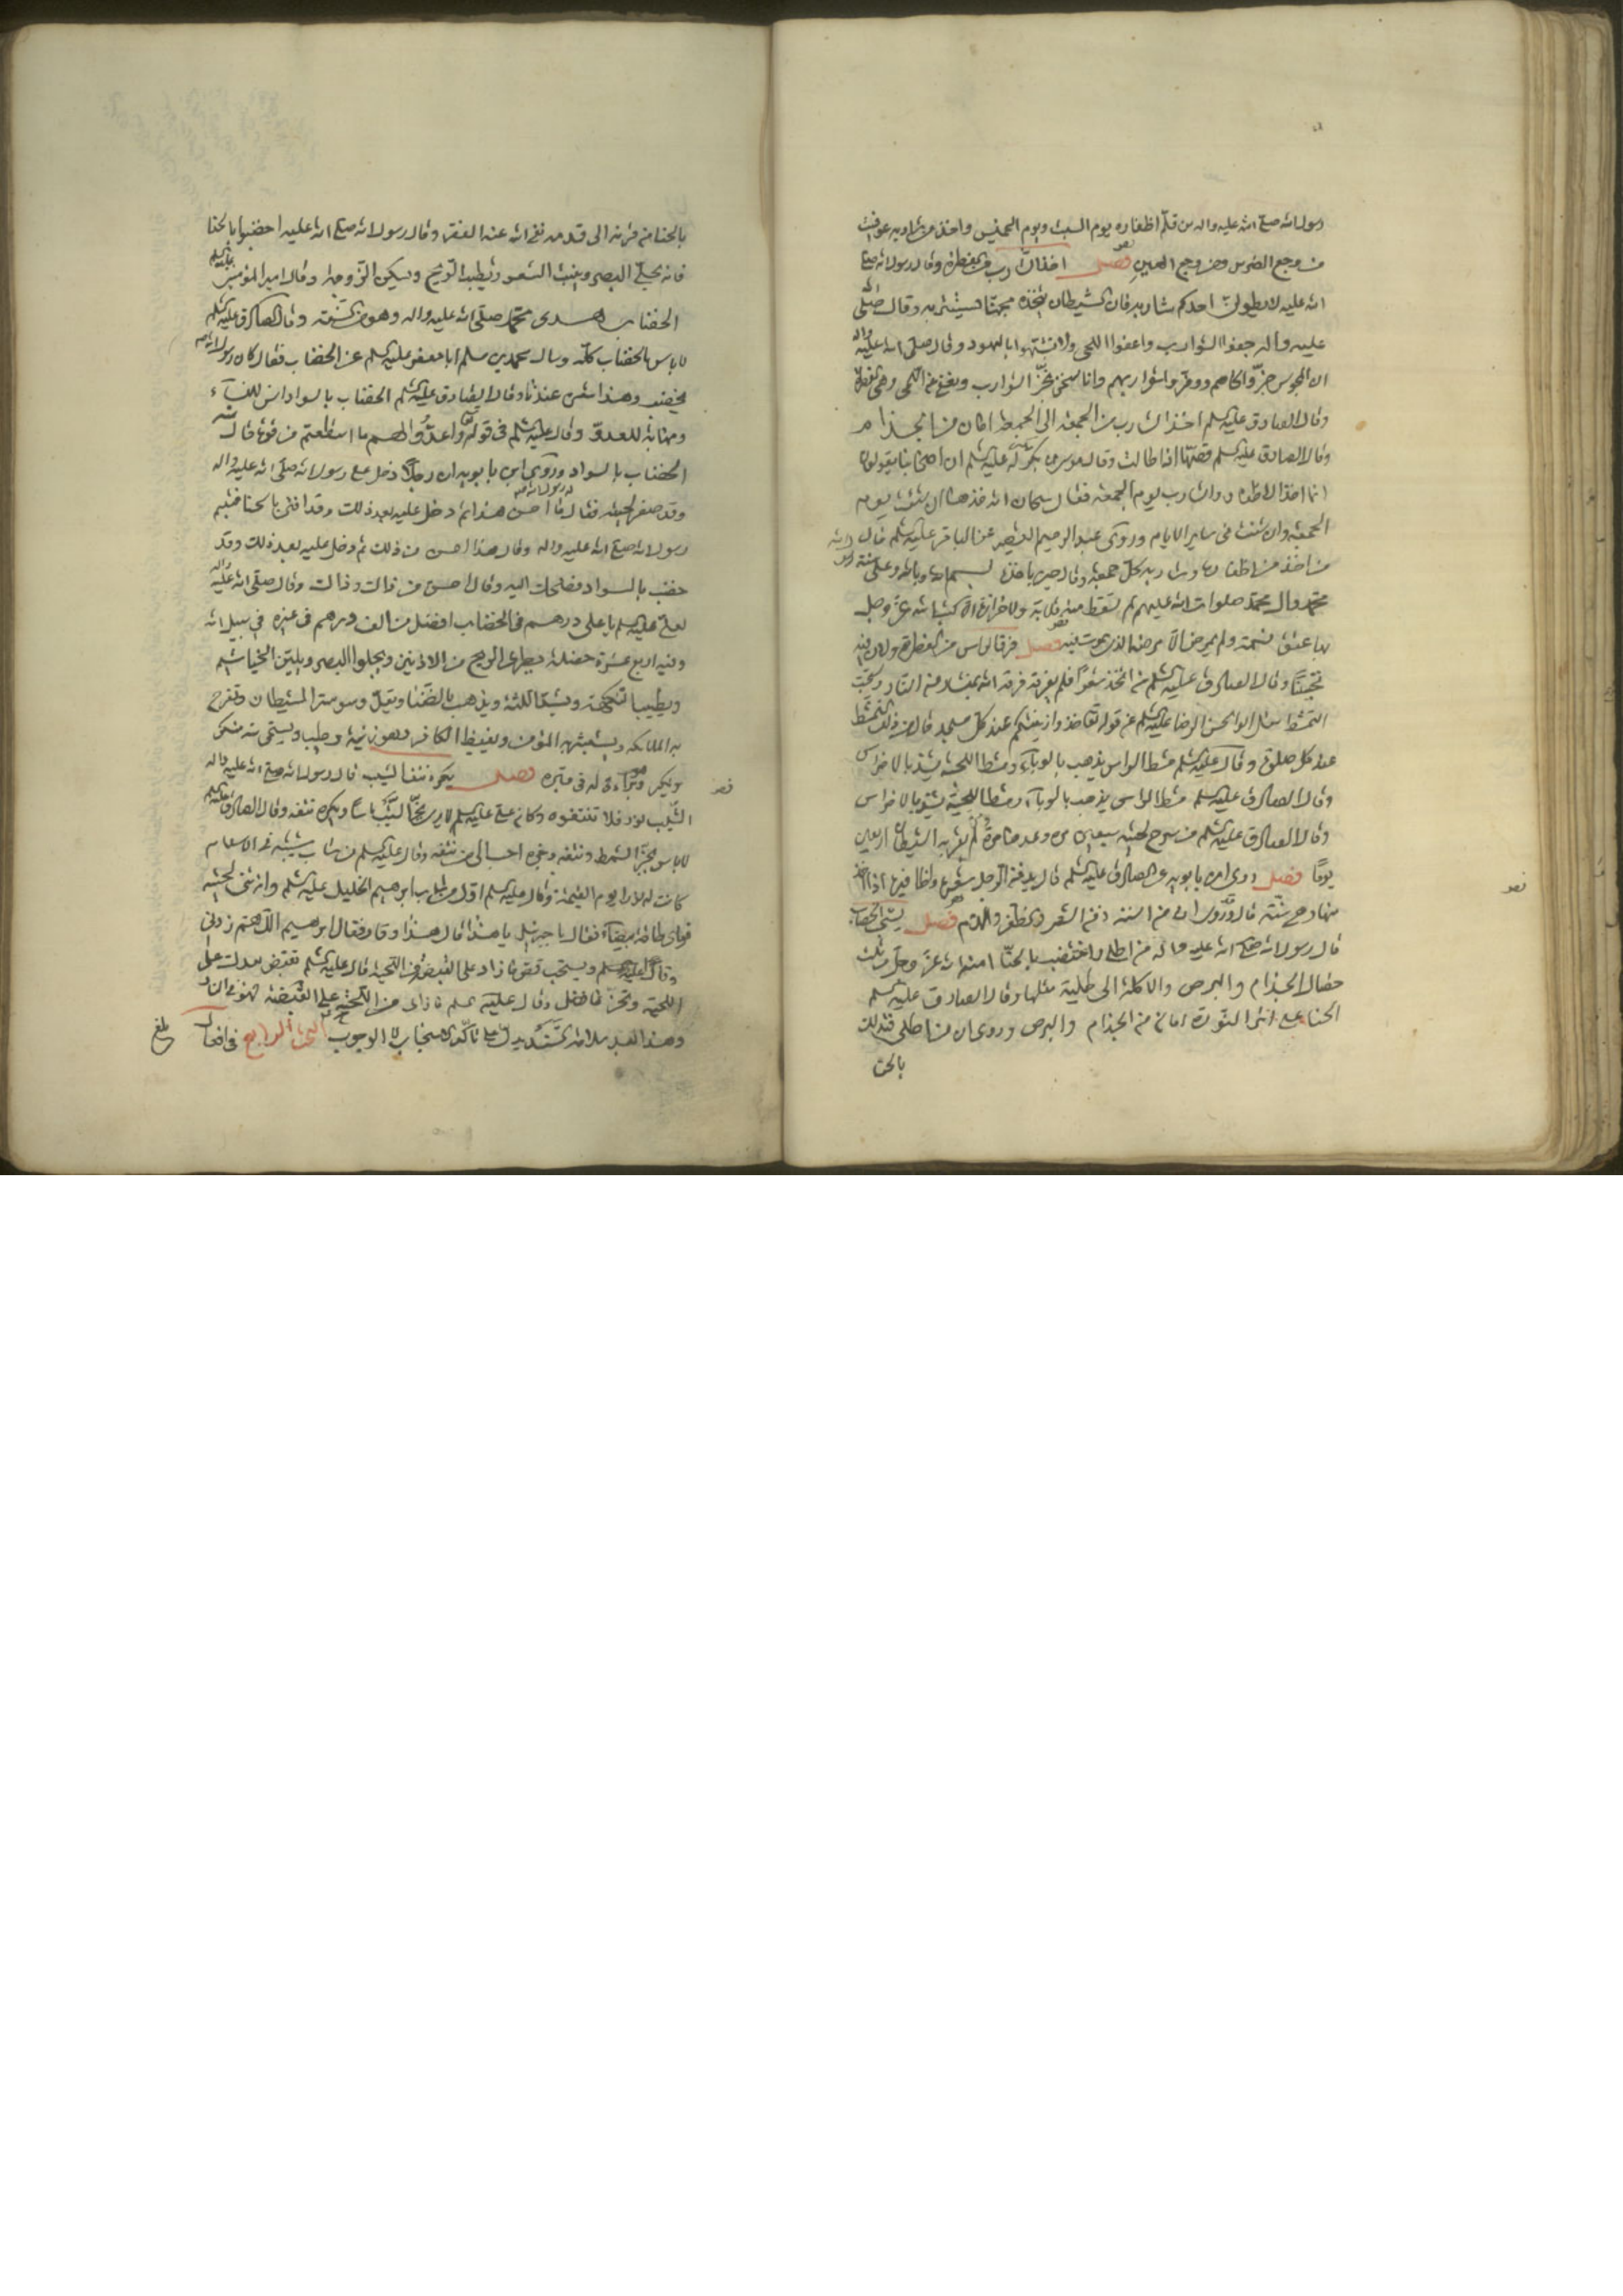 رسول الله صلى الله عليه واله من قلم اظفاره يوم السبت ويوم الخميس واخذ من شاربه عوفى
من وجع الضرس ومن وجع العين فصل اخذ الشارب من الفطرة وقال رسول الله صلى
الله عليه لا يطولن احدكم شاربه فان الشيطان يتخذه مجنا يستتر به وقال صلى الله
عليه واله حفوا الشوارب واعفوا اللحى ولا تشبهوا باليهود وقال صلى الله عليه واله
ان المجوس جزوا لحاهم ووفروا شواربهم وانا نحن نجز الشوارب ونعفي اللحى وهى الفطرة
وقال الصادق عليه السلم اخذ الشارب من الجمعة الى الجمعة امان من الجذام
وقال الصادق عليه السلم قصها اذا طالت وقال موسى بن بكر له عليه السلم ان اصحابنا يقولون
انما اخذ الاظفار والشارب يوم الجمعة فقال سبحان الله خذها ان شئت يوم
الجمعة وان شئت فى ساير الايام وروى عبد الرحيم القصير عن الباقر عليه السلم قال
من اخذ من اظفاره وشاربه كل جمعة وقال حين ياخذ بسم الله وبالله وعلى سنة
محمد وال محمد صلوات الله عليهم لم تسقط منه قلامة ولا جزازة الا كتب الله عز وجل
بها عتق نسمة ولم يمرض الا مرضه الذى يموت فيه فصل فرق الراس من الفطرة ولان فيه
تحسينا وقال الصادق عليه السلم من اتخذ شعرا فلم يفرقه فرقه الله بمنشار من النار ويستحب
التمشط سئل ابو الحسن الرضا عليه السلم عن قوله تعالى خذوا زينتكم عند كل مسجد قال من ذلك التمشط
عند كل صلوة وقال عليه السلم مشط الراس يذهب بالوباء ومشط اللحية يشد الاضراس
وقال الصادق عليه السلم مشط الراس يذهب بالوباء ومشط اللحية يشد الاضراس
وقال الصادق عليه السلم من سرح لحيته سبعين مرة وعدها مرة مرة لم يقربه الشيطان اربعين
يوما فصل روى ابن بابويه عن الصادق عليه السلم قال يدفن الرجل شعره واظافيره اذا اخذ
منها وهى سنة قال وروى ان من السنة دفن الشعر والظفر والدم فصل يستحب الخضاب
قال رسول الله صلى الله عليه واله من اطلى واختضب بالحنا امنه الله عز وجل من ثلث
خصال الجذام والبرص والاكلة الى طلية مثلها وقال الصادق عليه السلم
الحنا على اثر النورة امان من الجذام والبرص وروى ان من اطلى فتدلك
بالحنا
بالحنا من قرنه الى قدمه نفى الله عنه الفقر وقال رسول الله صلى الله عليه اخضبوا بالحنا
فانه يجلى البصر وينبت الشعر ويطيب الريح ويسكن الزوجة وقال امير المؤمنين عليه السلم
الخضاب هدى محمد صلى الله عليه واله وهو من السنة وقال الصادق عليه السلم
لا باس بالخضاب كله وسال محمد بن مسلم ابا جعفر عليه السلم عن الخضاب فقال كان رسول الله
يختضب وهذا شعره عندنا وقال الصادق عليه السلم الخضاب بالسواد انس للنساء
ومهابة للعدو وقال عليه السلم فى قوله تعالى واعدوا لهم ما استطعتم من قوة قال منه
الخضاب بالسواد وروى ابن بابويه ان رجلا دخل على رسول الله صلى الله عليه واله
وقد صفر لحيته فقال له رسول الله ما احسن هذا ثم دخل عليه بعد ذلك وقد اقنى بالحنا فتبسم
رسول الله صلى الله عليه واله وقال هذا احسن من ذلك ثم دخل عليه بعد ذلك وقد
خضب بالسواد فضحك اليه وقال احسن من ذاك وذاك وقال صلى الله عليه واله
لعلى عليه السلم يا على درهم فى الخضاب افضل من الف درهم فى غيره فى سبيل الله
وفيه اربع عشرة خصلة يطرد الريح من الاذنين ويجلوا البصر ويلين الخياشيم
ويطيب النكهة ويشد اللثة ويذهب بالضنا ويقل وسوسة الشيطان وتفرح
به الملائكة ويستبشر به المؤمن ويغيظ الكافر وهو زينة وطيب ويستحى منه منكر
ونكير وهو براءة له فى قبره فصل يكره نتف الشيب قال رسول الله صلى الله عليه واله
الشيب نور فلا تنتفوه وكان على عليه السلم لا يرى بجز الشيب باسا ويكره نتفه وقال الصادق عليه السلم
لا باس بجز الشمط ونتفه وجزه احب الى من نتفه وقال عليه السلم من شاب شيبة فى الاسلام
كانت له نورا يوم القيمة وقال عليه السلم اول من شاب ابرهيم الخليل عليه السلم وانه ثنى لحيته
فراى طاقة بيضاء فقال يا جبرئيل ما هذا قال هذا وقار فقال ابرهيم اللهم زدنى
وقارا عليه السلم ويستحب قص ما زاد على القبضة من اللحية قال عليه السلم تقبض بيدك على
اللحية وتجز ما فضل وقال عليه السلم ما زاد من اللحية على القبضة فهو فى النار
وهذا التشديد يدل على تاكد الاستحباب لا الوجوب البحث الرابع فى افعال
بلغ